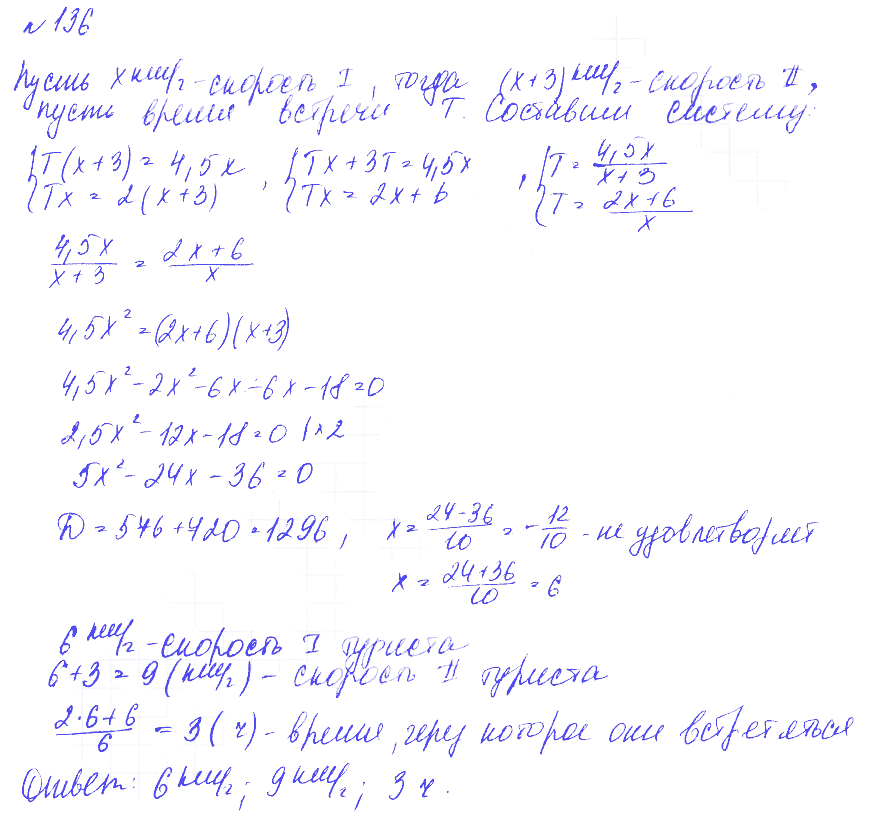 №136
Пусть x км/г - скорость I, тогда (x+3) км/г - скорость II,
пусть время встречи T. Составим систему:
{T(x+3) = 4,5x , {Tx+3T=4,5x , {T = 4,5x/(x+3)
{Tx = 2(x+3) {Tx = 2x+6 {T = (2x+6)/x
4,5x/(x+3) = (2x+6)/x
4,5x² = (2x+6)(x+3)
4,5x² - 2x² - 6x - 6x - 18 = 0
2,5x² - 12x - 18 = 0 |×2
5x² - 24x - 36 = 0
D = 576 + 720 = 1296, x = (24-36)/10 = -12/10 - не удовлетворяет
x = (24+36)/10 = 6
6 км/г - скорость I туриста
6+3 = 9 (км/г) - скорость II туриста
(2·6+6)/6 = 3 (ч) - время, через которое они встретяться
Ответ: 6 км/г; 9 км/г; 3 ч.